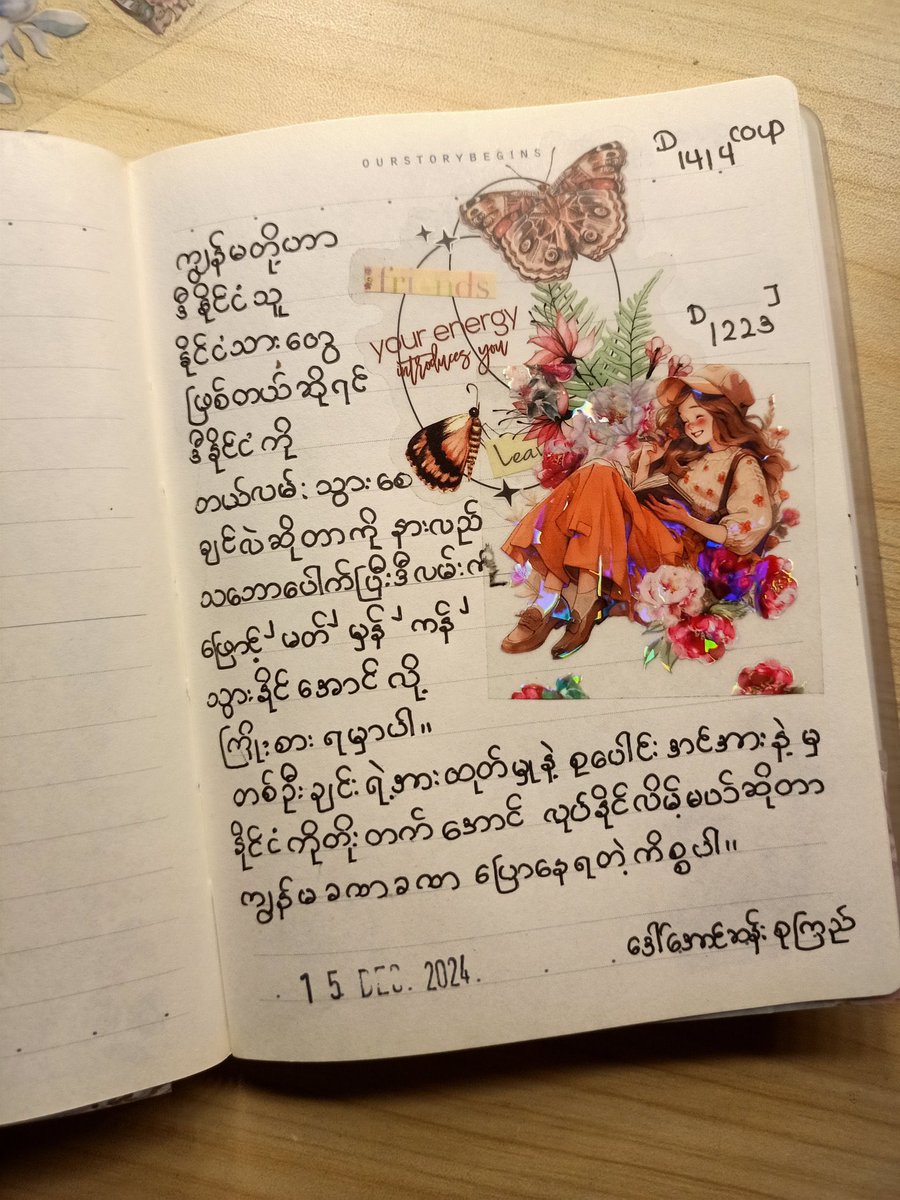 OURSTORYBEGINS
D 1414 coup
friends
your energy
introduces you
D 1223 J
Lea
ကျွန်မတို့ဟာ
ဒီနိုင်ငံသူ
နိုင်ငံသားတွေ
ဖြစ်တယ်ဆိုရင်
ဒီနိုင်ငံကို
ဘယ်လမ်းသွားစေ
ချင်လဲဆိုတာကို နားလည်
သဘောပေါက်ပြီးဒီလမ်းကို
ဖြောင့်၂ မတ်၂ မှန်၂ ကန်၂
သွားနိုင်အောင်လို့
ကြိုးစားရမှာပါ။
တစ်ဦးချင်းရဲ့အားထုတ်မှုနဲ့ စုပေါင်းအင်အားနဲ့မှ
နိုင်ငံကိုတိုးတက်အောင် လုပ်နိုင်လိမ့်မယ်ဆိုတာ
ကျွန်မခဏခဏ ပြောနေရတဲ့ကိစ္စပါ။
ဒေါ်အောင်ဆန်းစုကြည်
15 DEC. 2024.